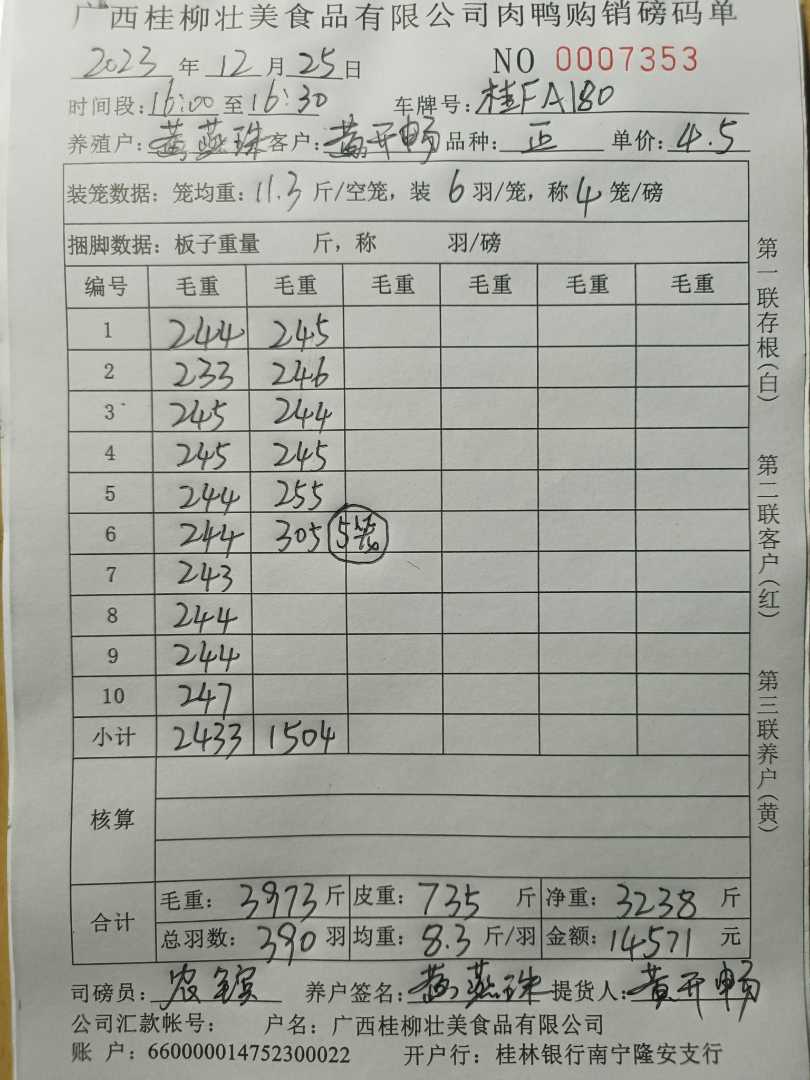 广西桂柳壮美食品有限公司肉鸭购销磅码单
2023 年 12 月 25 日 NO 0007353
时间段: 16:00 至 16:30 车牌号: 桂FA180
养殖户: 黄燕珠 客户: 黄开畅 品种: 正 单价: 4.5
装笼数据: 笼均重: 11.3 斤/空笼, 装 6 羽/笼, 称 4 笼/磅
捆脚数据: 板子重量 斤, 称 羽/磅
编号 毛重 毛重 毛重 毛重 毛重 毛重
1 244 245
2 233 246
3 245 244
4 245 245
5 244 255
6 244 305 5笼
7 243
8 244
9 244
10 247
小计 2433 1504
核算
合计
毛重: 3973 斤 皮重: 735 斤 净重: 3238 斤
总羽数: 390 羽 均重: 8.3 斤/羽 金额: 14571 元
司磅员: 农 养户签名: 黄燕珠 提货人: 黄开畅
公司汇款帐号: 户名: 广西桂柳壮美食品有限公司
账 户: 660000014752300022 开户行: 桂林银行南宁隆安支行
第一联存根(白)
第二联客户(红)
第三联养户(黄)